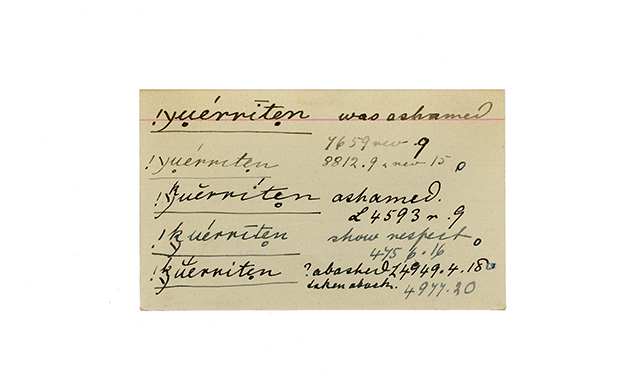 !χu̱érrīte̱n was ashamed
7659 rev 9
!χu̱érrīte̱n 8812.9 rev 15
!k̲χŭérrīte̱n ashamed.
L 4593 r. 9
!kχuérrīte̱n show respect
475 6.16
!kχŭerrite̱n ? abashed L 4949.4.18
taken abash. 4977.20